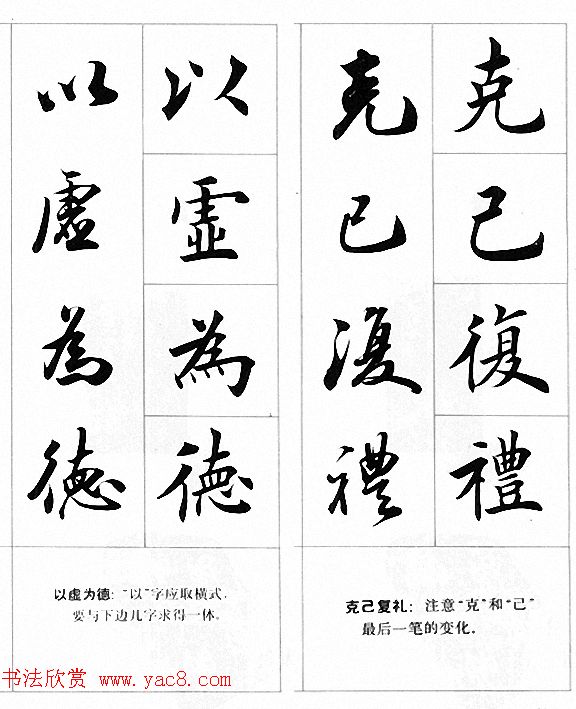 克己復禮
克己復禮
克己复礼：注意“克”和“己”
最后一笔的变化．
以虛為德
以虛為德
以虚为德：“以”字应取横式，
要与下边几字求得一体。
书法欣赏 www.yac8.com